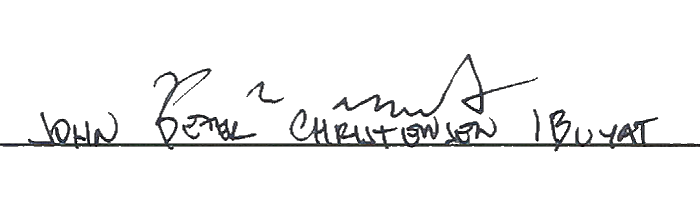 JOHN PETER CHRISTENSEN IBUYAT